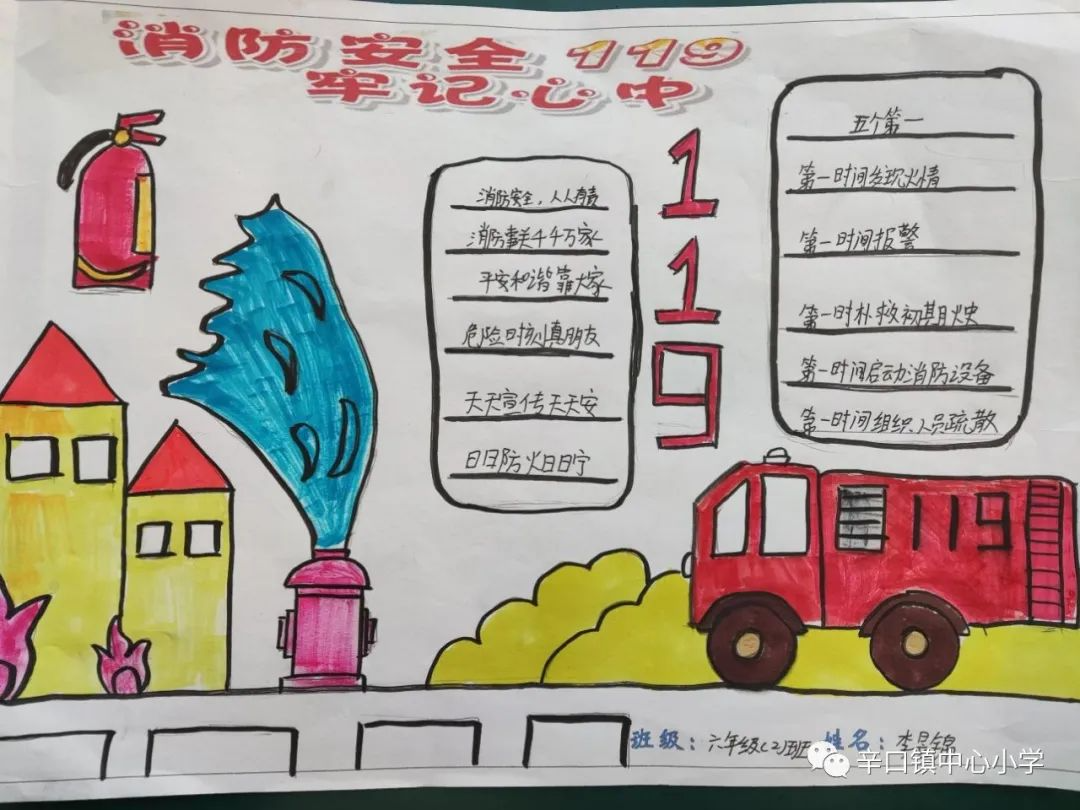 消防安全 119
牢记心中
消防安全，人人有责
消防事关千万家
平安和谐靠大家
危险时刻真朋友
天天宣传天天安
日日防火日日宁
119
五个第一
第一时间发现火情
第一时间报警
第一时扑救初期火灾
第一时间启动消防设备
第一时间组织人员疏散
119
班级：六年级(2)班 姓名：李
辛口镇中心小学